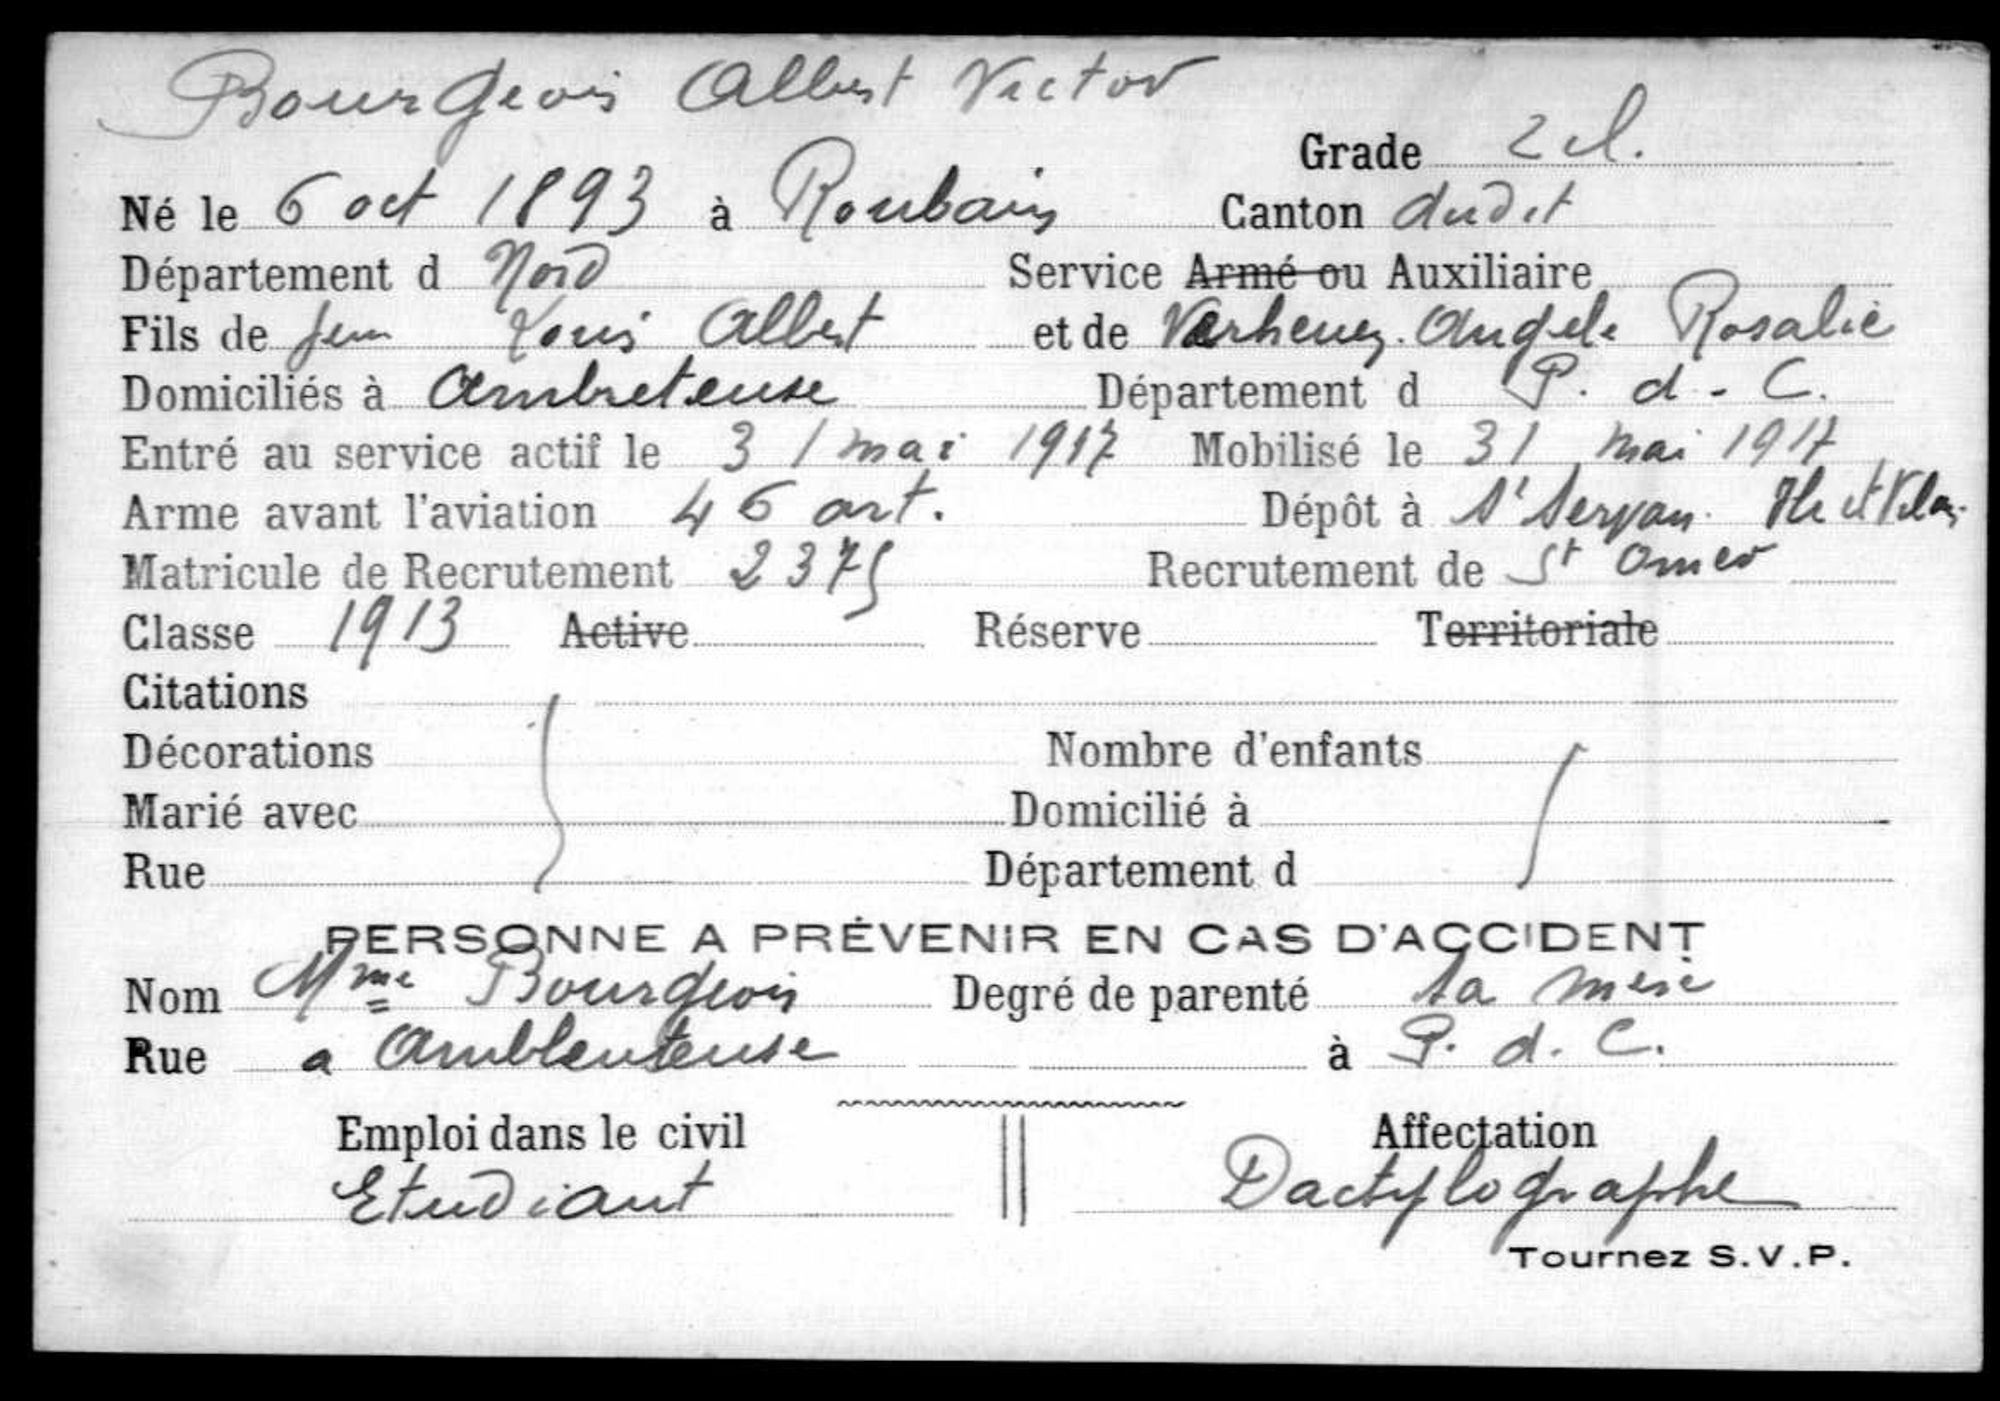 Bourgeois Albert Victor
Grade 2 cl.
Né le 6 oct 1893 à Roubaix Canton dudit
Département d Nord Service Armé ou Auxiliaire
Fils de feu Louis Albert et de Angele Rosalie
Domiciliés à Ambreteuse Département d P. d. C.
Entré au service actif le 31 mai 1917 Mobilisé le 31 mai 1917
Arme avant l'aviation 46 art. Dépôt à St Servan. Ile et Vilai.
Matricule de Recrutement 2375 Recrutement de St Omer
Classe 1913 Active Réserve Territoriale
Citations
Décorations Nombre d'enfants
Marié avec Domicilié à
Rue Département d
PERSONNE A PRÉVENIR EN CAS D'ACCIDENT
Nom Mme Bourgeois Degré de parenté sa mère
Rue a Ambleuteuse à P. d. C.
Emploi dans le civil Affectation
Etudiant Dactylographe
Tournez S.V.P.